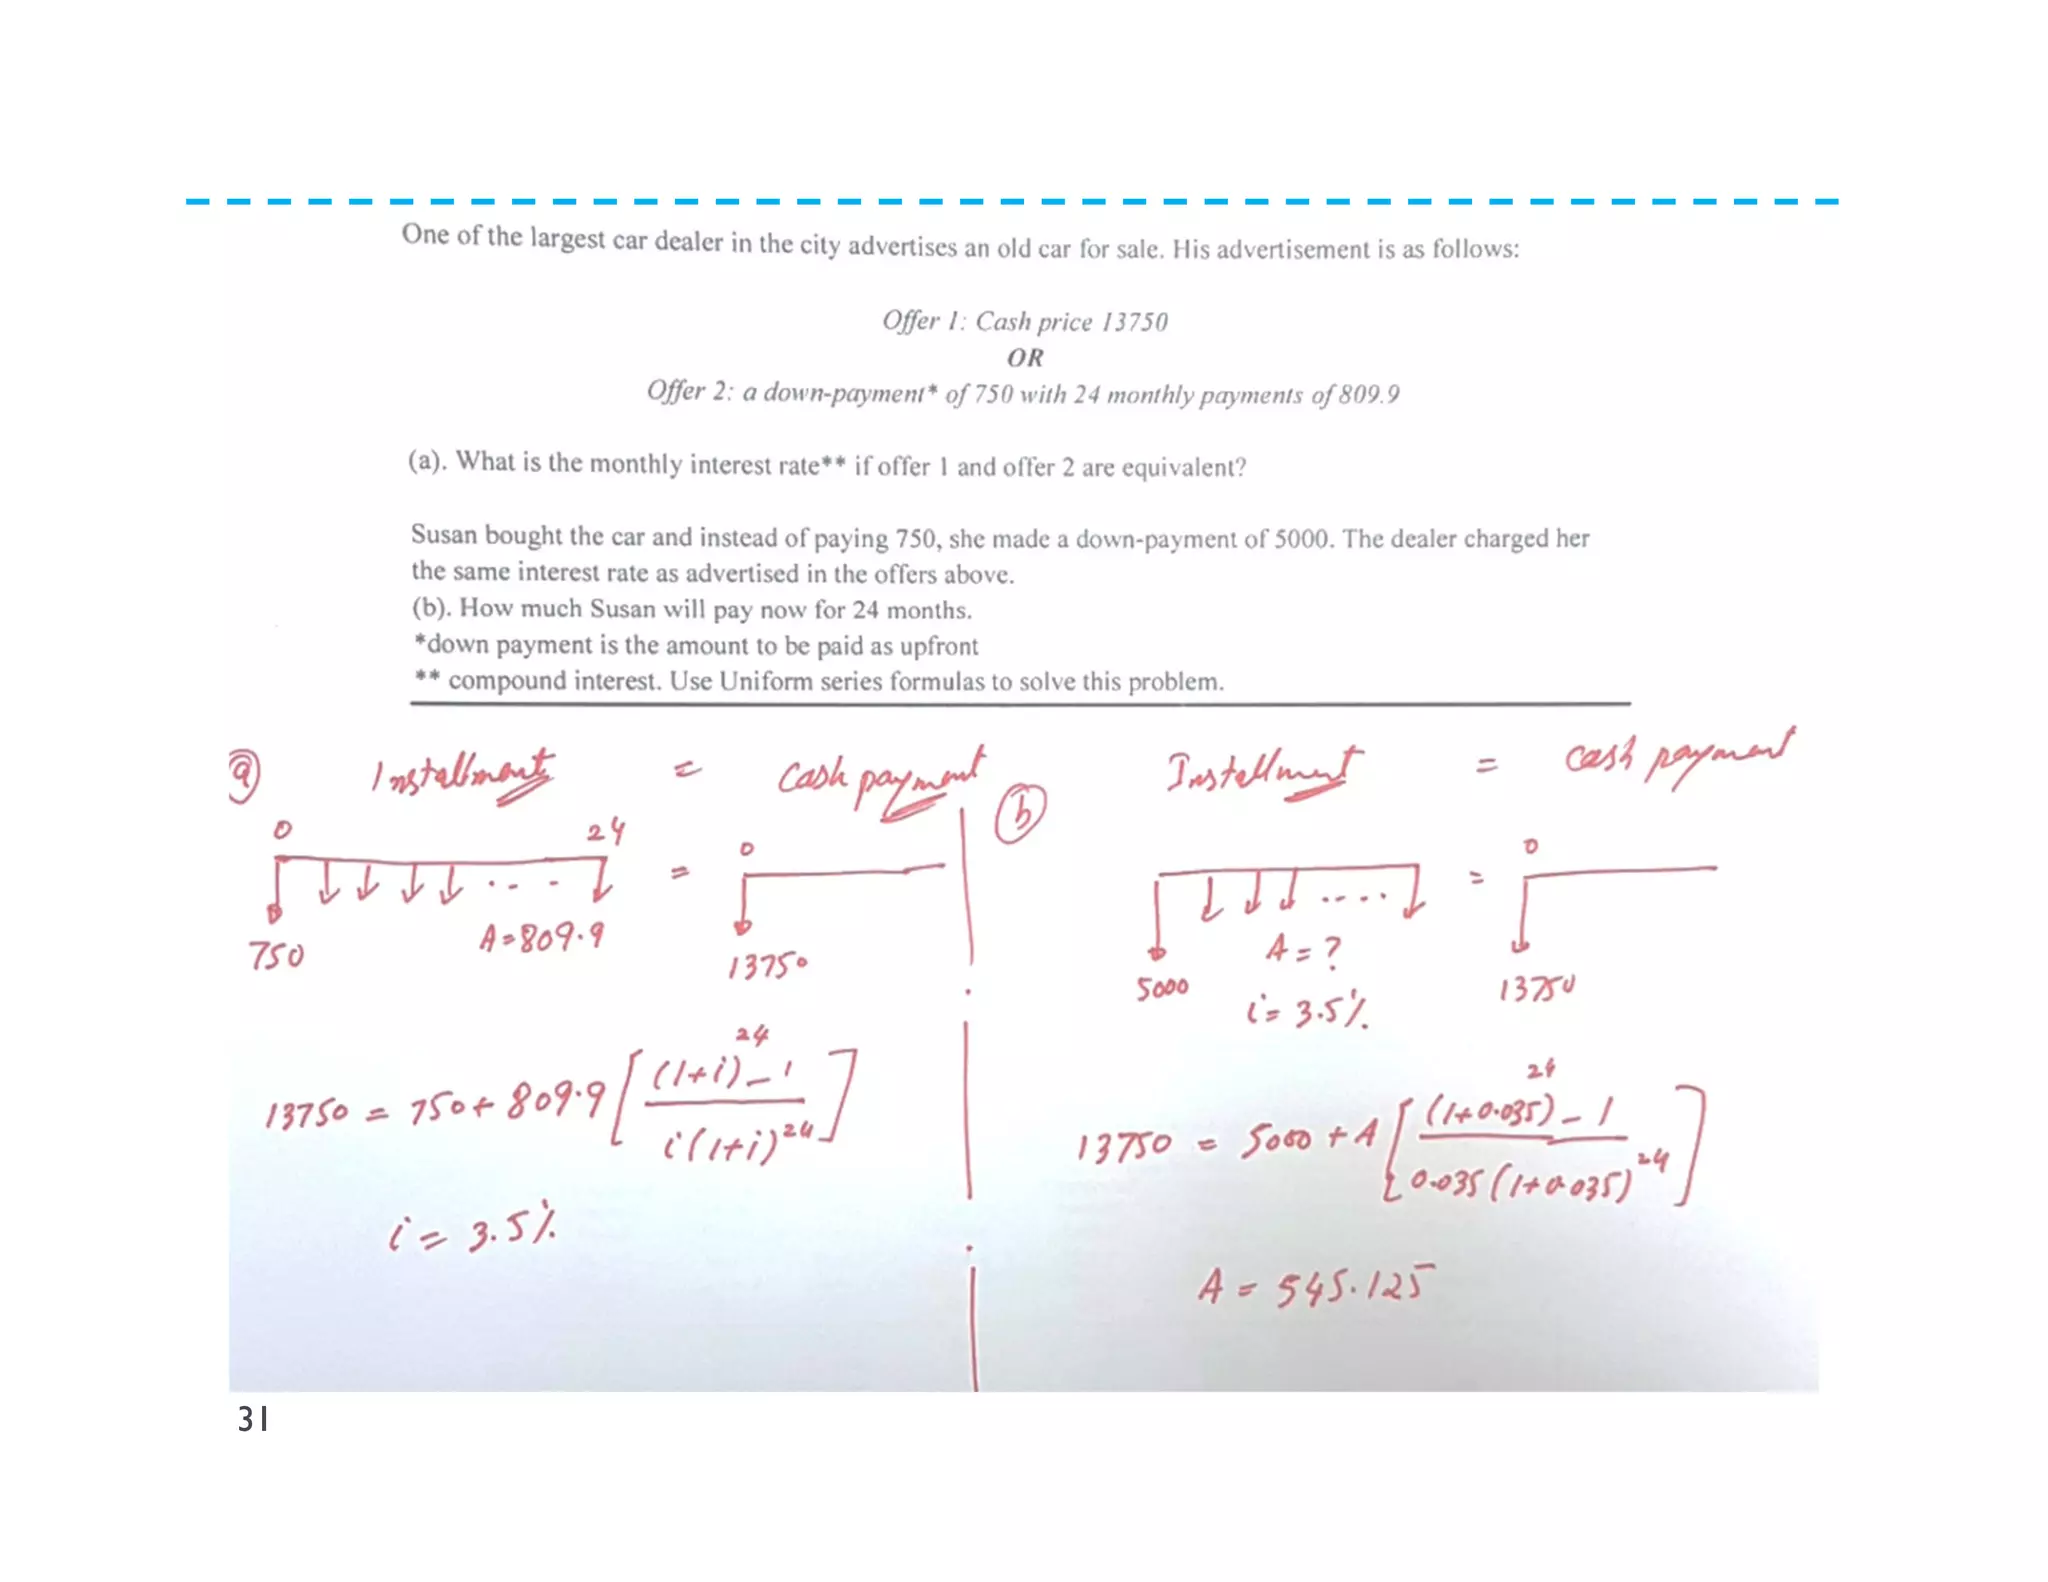 One of the largest car dealer in the city advertises an old car for sale. His advertisement is as follows:
Offer 1: Cash price 13750
OR
Offer 2: a down-payment* of 750 with 24 monthly payments of 809.9
(a). What is the monthly interest rate** if offer 1 and offer 2 are equivalent?
Susan bought the car and instead of paying 750, she made a down-payment of 5000. The dealer charged her
the same interest rate as advertised in the offers above.
(b). How much Susan will pay now for 24 months.
*down payment is the amount to be paid as upfront
** compound interest. Use Uniform series formulas to solve this problem.
(a) Installment = Cash payment
0 24 = 0
750 A=809.9 13750
13750 = 750+ 809.9 [ (1+i)^24 - 1 / i(1+i)^24 ]
i = 3.5%
(b) Installment = Cash payment
= 0
5000 A = ? 13750
i = 3.5%
13750 = 5000 + A [ (1+0.035)^24 - 1 / 0.035 (1+0.035)^24 ]
A = 545.125
31